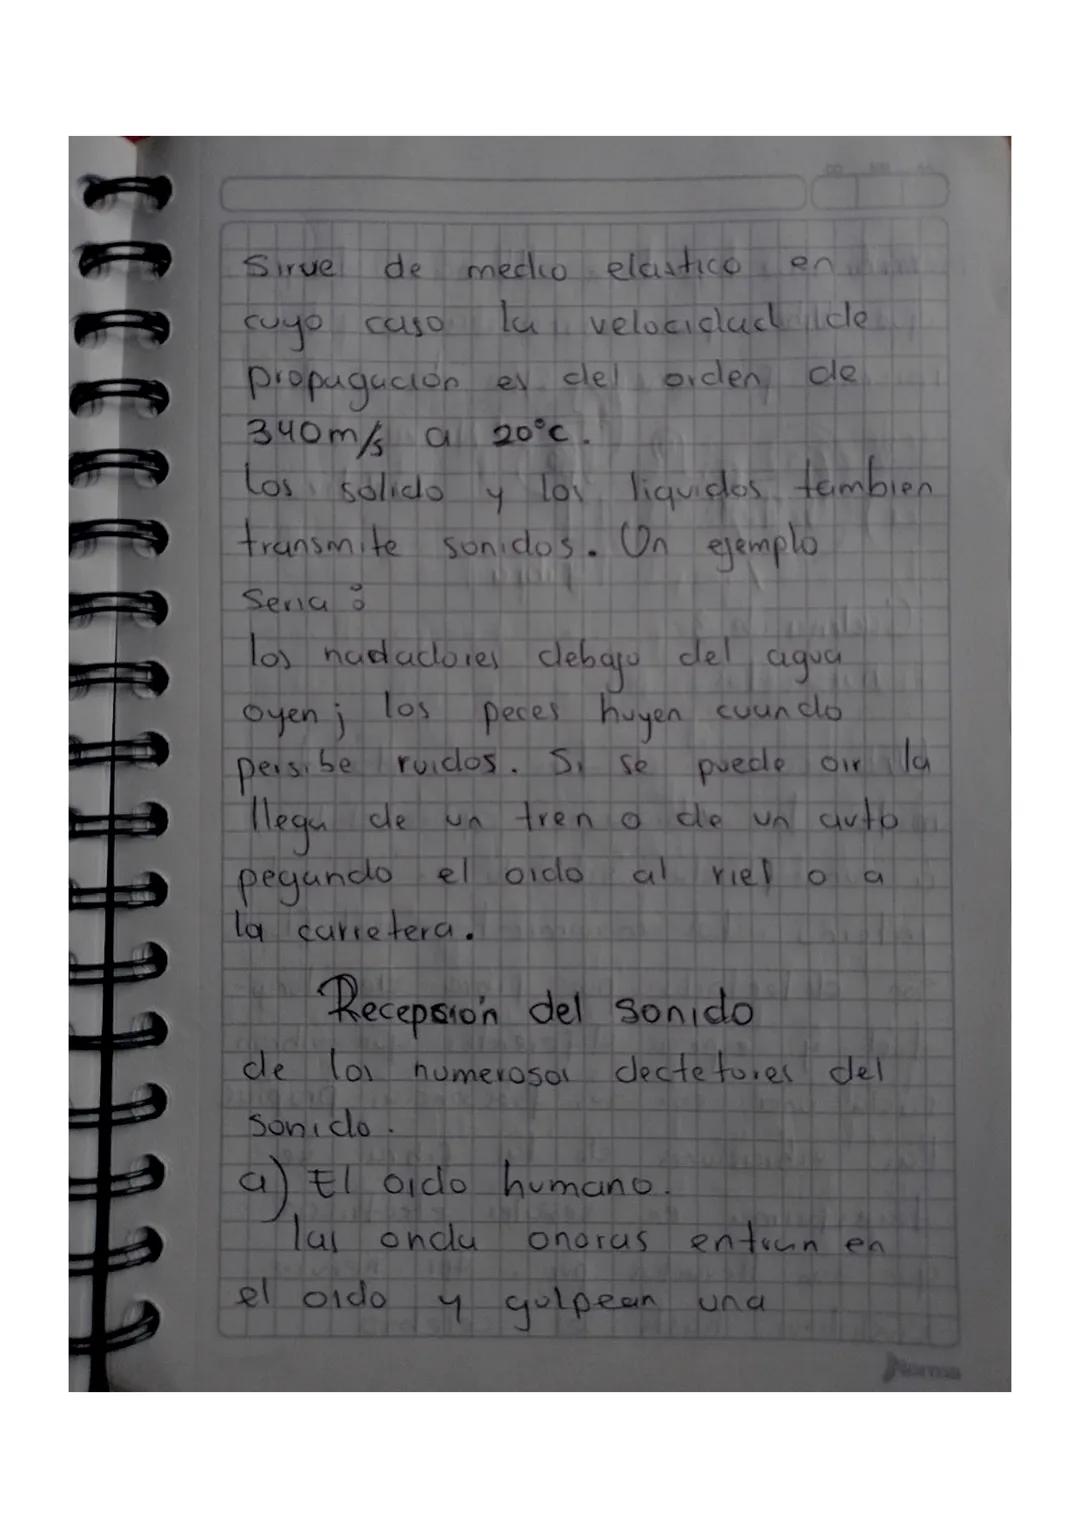 Sirve de medio elastico en
cuyo caso la velocidad de
propagación es del orden de
340m/s a 20°c.
Los solido y los liquidos tambien
transmite sonidos. Un ejemplo
Seria :
los nadadores debajo del agua
oyen ; los peces huyen cuando
persibe ruidos. Si se puede oir la
llega de un tren o de un auto
pegando el oido al riel o a
la carretera.
Recepsión del sonido
de los numerosos dectetores del
sonido.
a) El oido humano.
las onda onoras entran en
el oido y golpean una
Norma